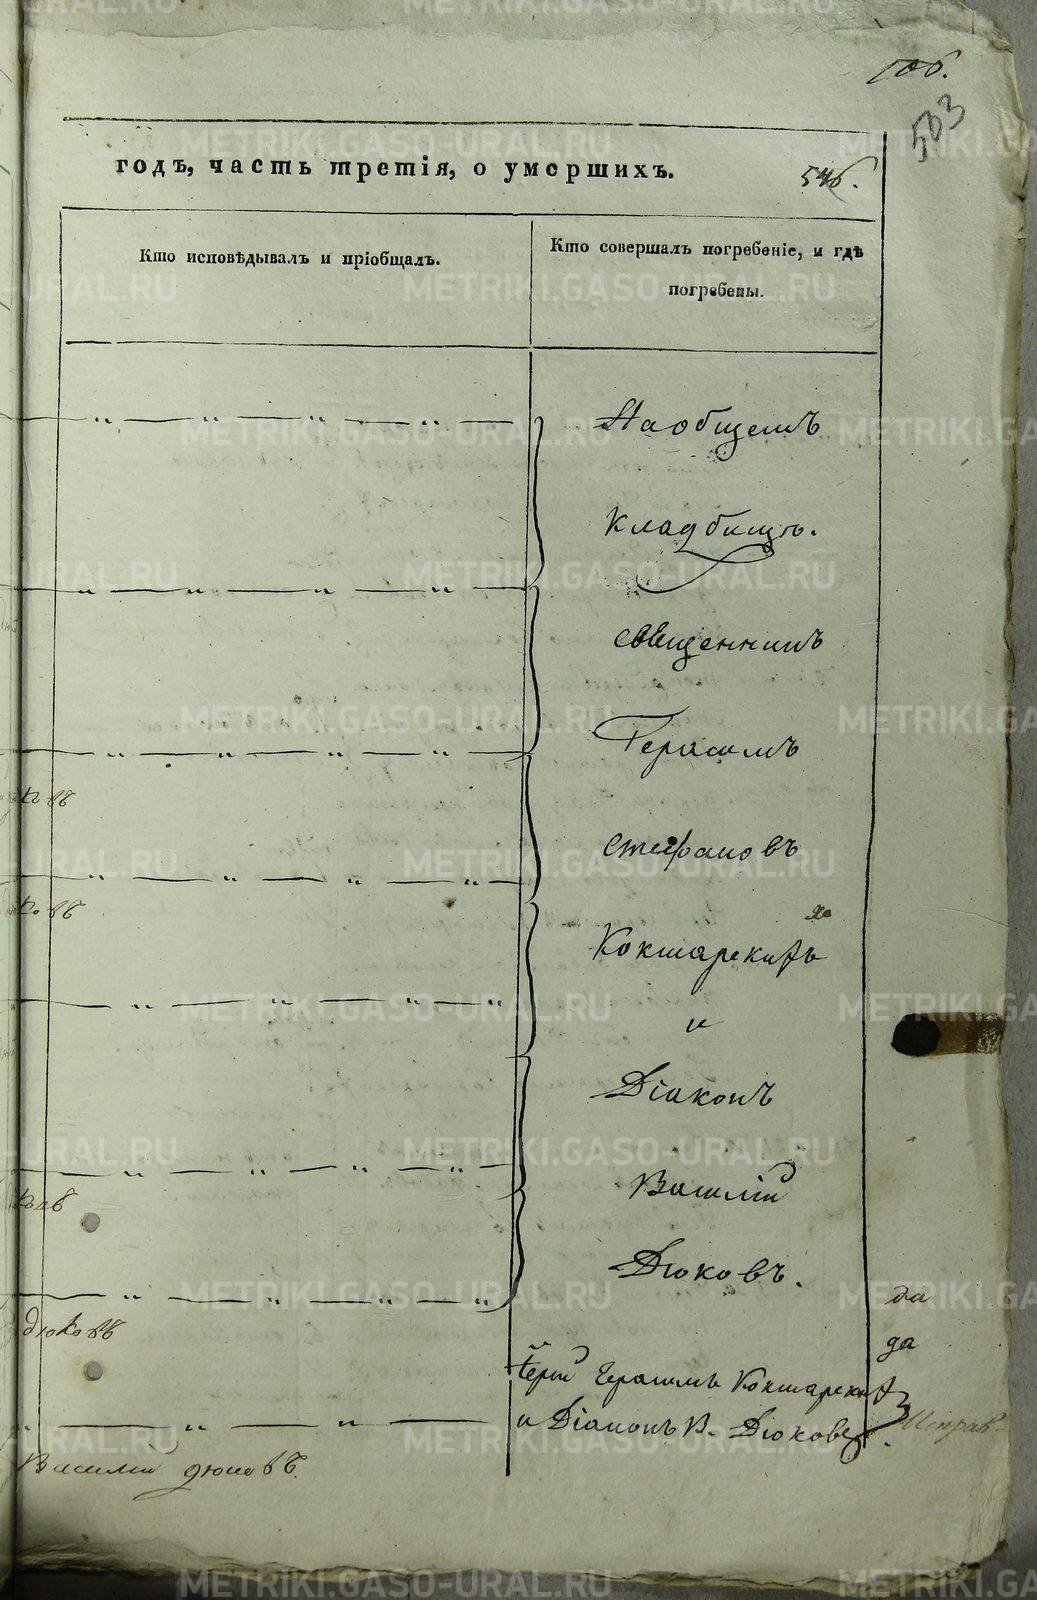 106.
503
годъ, часть третія, о умершихъ.
546.
Кто исповѣдывалъ и пріобщалъ.
Кто совершалъ погребеніе, и гдѣ
погребены.
На общемъ
кладбищѣ.
священникъ
Герасимъ
Стефановъ
Кокшарскихъ
и
Діаконъ
Василій
Дюковъ.
да
дюковъ
да
Іерей Герасимъ Кокшарскихъ
и Діаконъ В. Дюковъ
Василій дюковъ.
METRIKI.GASO-URAL.RU